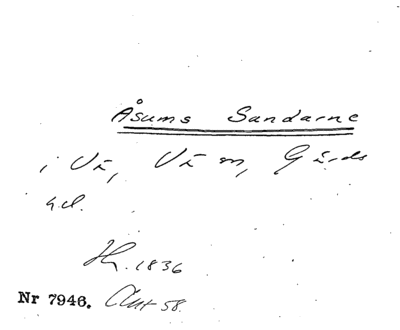 Åsums Sandarne
i Vä, Vä sn, Gärds
hd.
Hr. 1836
Nr 7946. Ant 58.